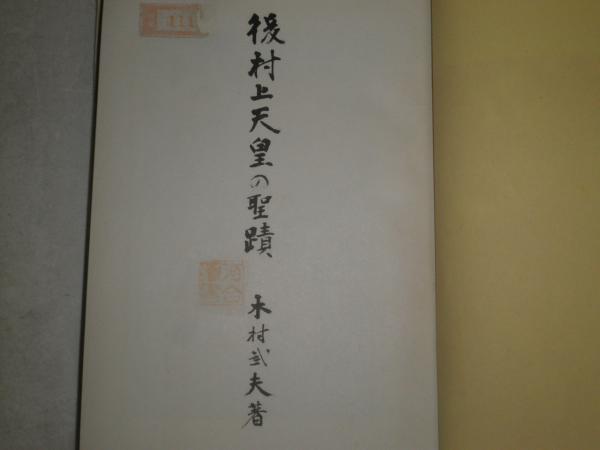 後村上天皇の聖蹟
木村武夫著